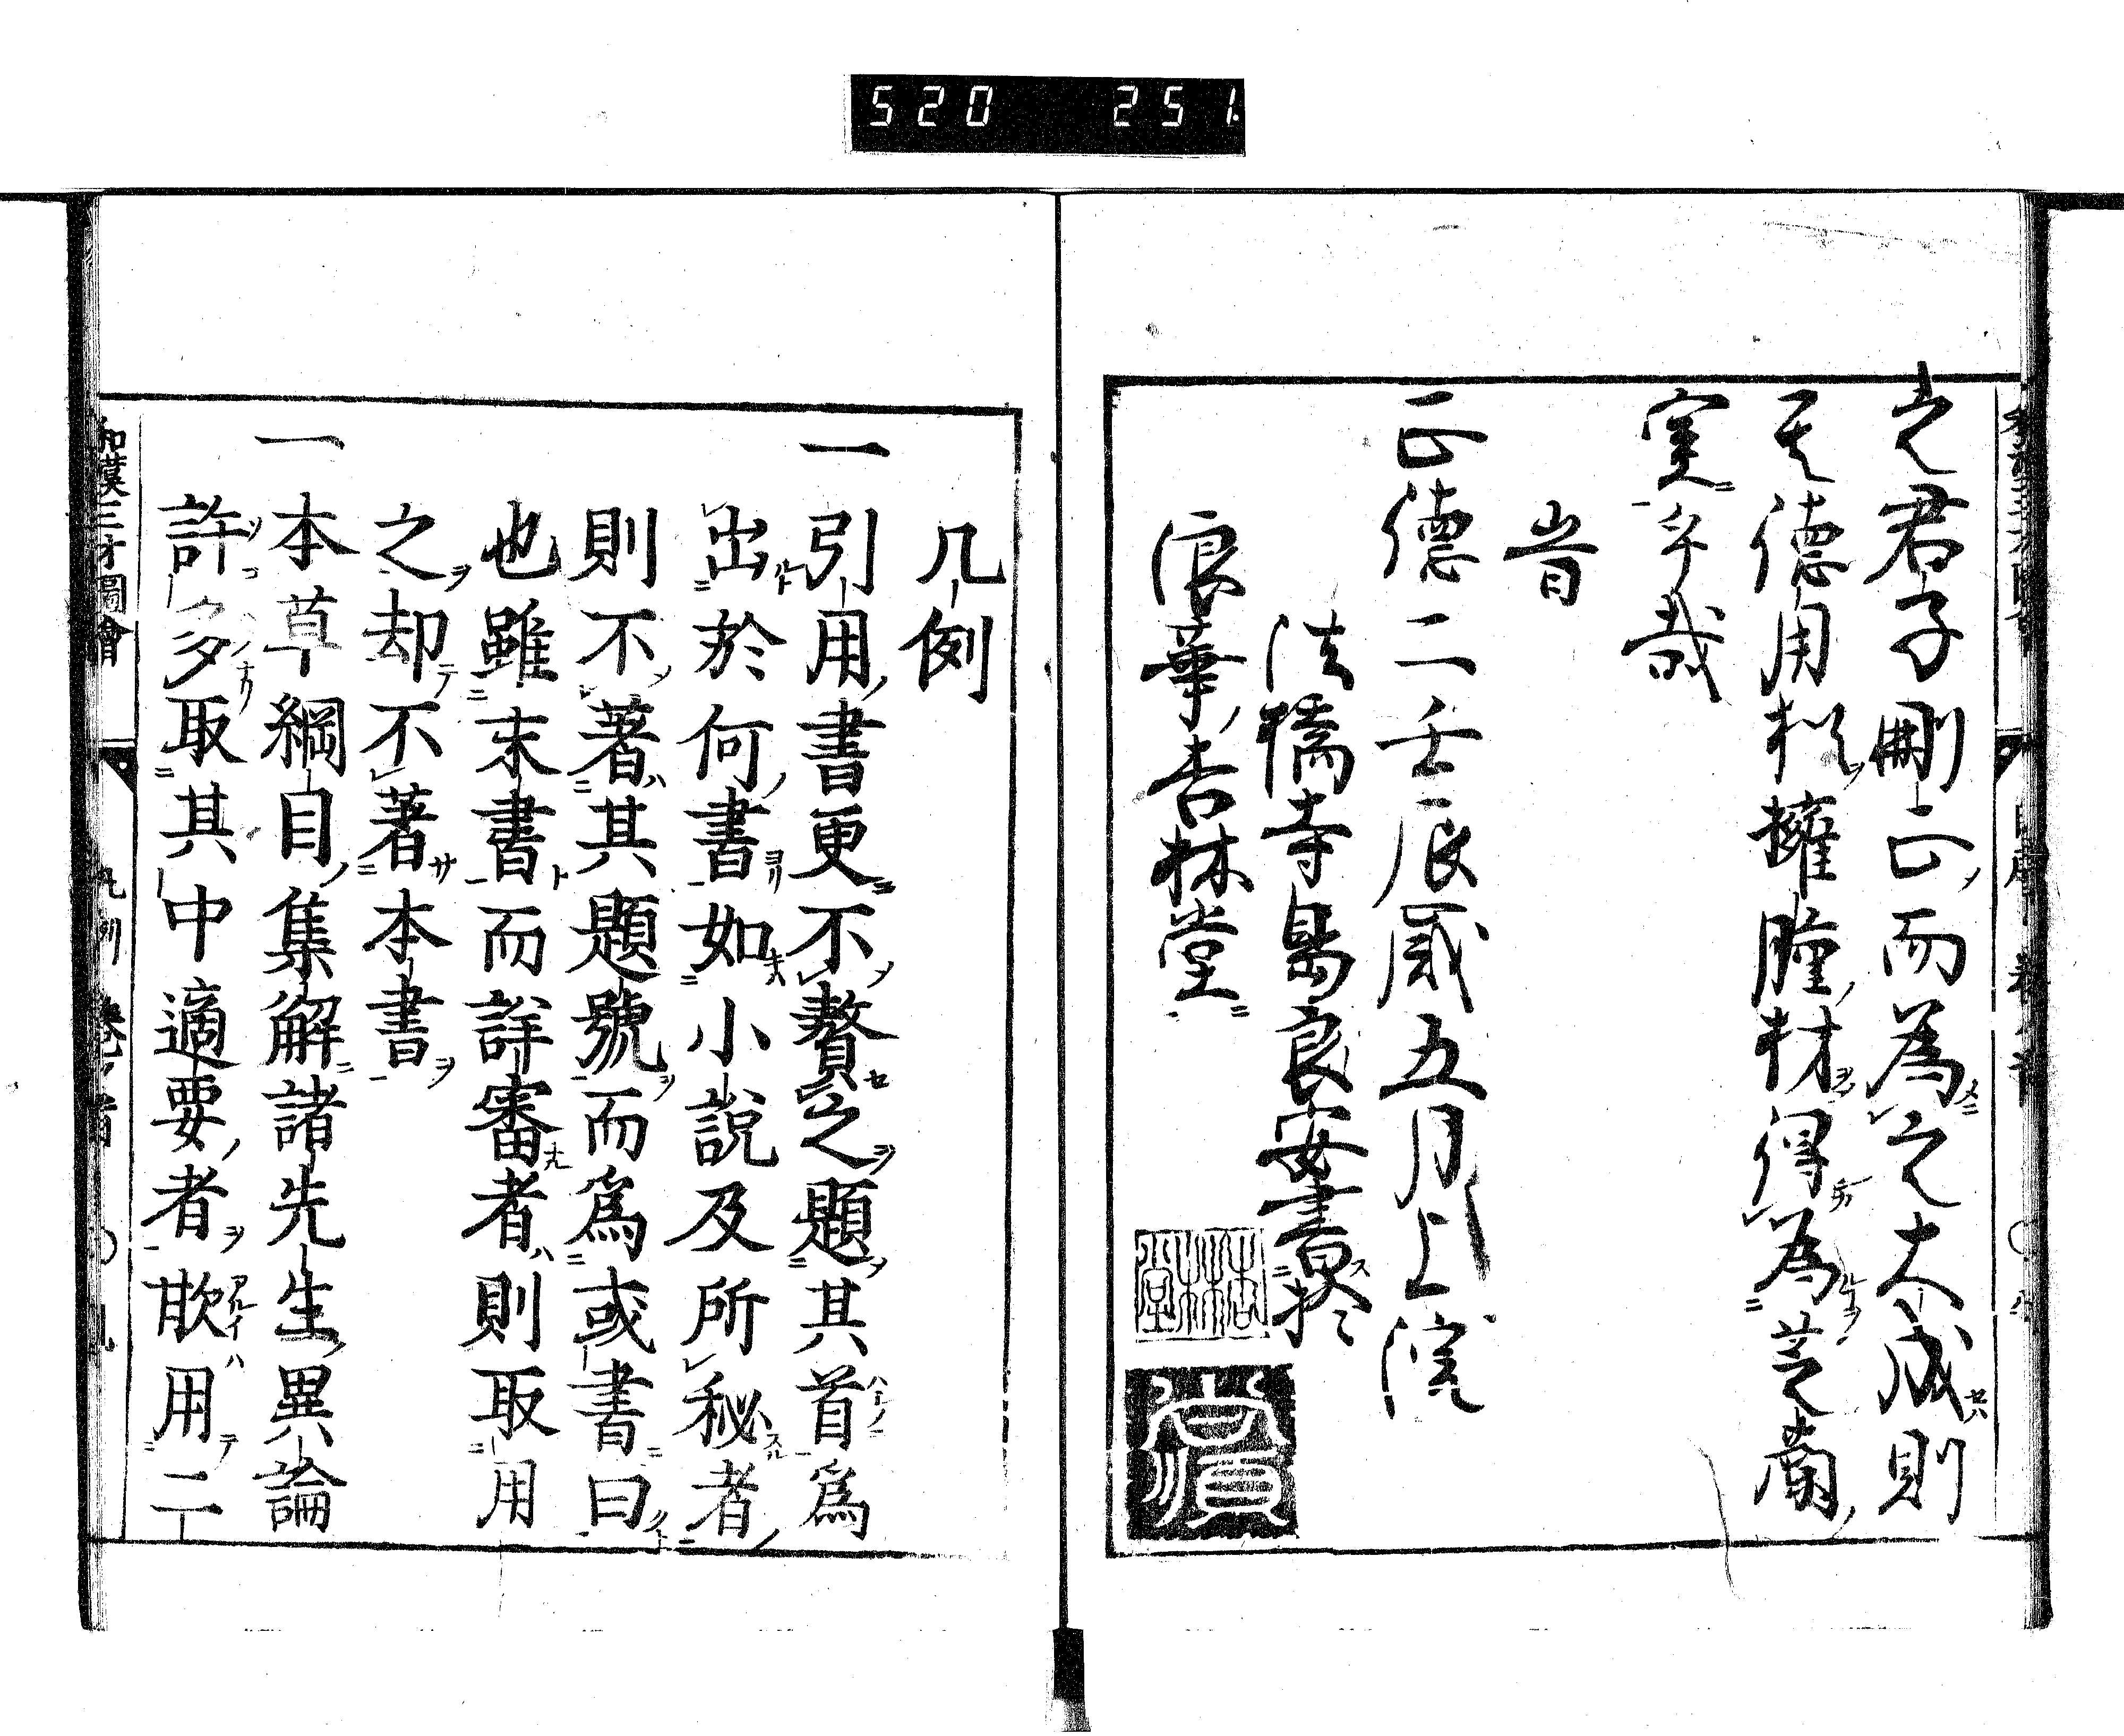 520 251
之君子刪正而為之大成則
其德用猶擁腫材得為芝蘭
室乎哉
旹
正德二壬辰歲五月上浣
法橋寺島良安書於
浪華杏林堂
杏林堂
凡例
一引用書更不贅之題其首為
出於何書如小說及所秘者
則不著其題號而為或書曰
也雖末書而詳審者則取用
之却不著本書
一本草綱目集解諸先生異論
許多取其中適要者歃用二
和漢三才圖會 凡例 卷之首 〇 九